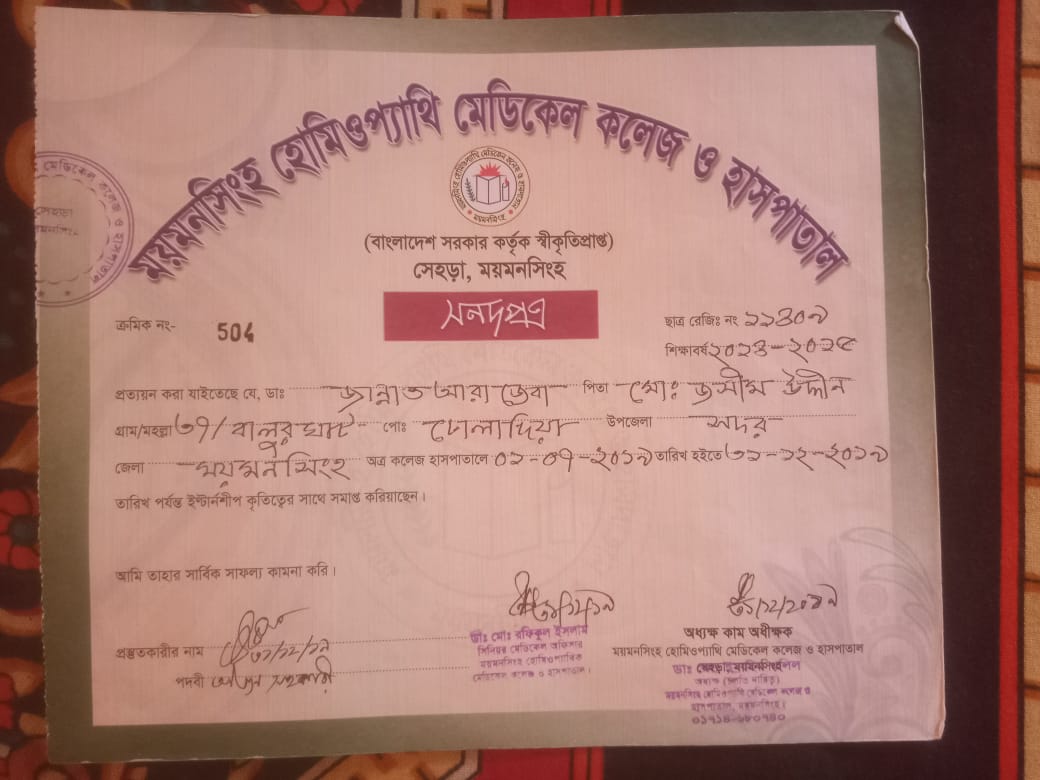 ময়মনসিংহ হোমিওপ্যাথি মেডিকেল কলেজ ও হাসপাতাল
(বাংলাদেশ সরকার কর্তৃক স্বীকৃতিপ্রাপ্ত)
সেহড়া, ময়মনসিংহ
সনদপত্র
ক্রমিক নং- 504
ছাত্র রেজিঃ নং ১১৪০৯
শিক্ষাবর্ষ ২০১৪-২০১৫
প্রত্যয়ন করা যাইতেছে যে, ডাঃ জান্নাত আরা জেবা পিতা মোঃ জসীম উদ্দীন
গ্রাম/মহল্লা ৩৭/বালুর ঘাট পোঃ গোলাদিয়া উপজেলা সদর
জেলা ময়মনসিংহ অত্র কলেজ হাসপাতালে ০১-০৭-২০১৯ তারিখ হইতে ৩১-১২-২০১৯
তারিখ পর্যন্ত ইন্টার্নশীপ কৃতিত্বের সাথে সমাপ্ত করিয়াছেন।
আমি তাহার সার্বিক সাফল্য কামনা করি।
প্রস্তুতকারীর নাম ৩১/১২/১৯
পদবী অফিস সহকারী
৩১/১২/১৯
ডাঃ মোঃ রফিকুল ইসলাম
সিনিয়র মেডিকেল অফিসার
ময়মনসিংহ হোমিওপ্যাথিক
মেডিকেল কলেজ ও হাসপাতাল।
৩১/১২/২০১৯
অধ্যক্ষ কাম অধীক্ষক
ময়মনসিংহ হোমিওপ্যাথি মেডিকেল কলেজ ও হাসপাতাল
ডাঃ
ময়মনসিংহ হোমিওপ্যাথি মেডিকেল কলেজ ও
হাসপাতাল, ময়মনসিংহ।